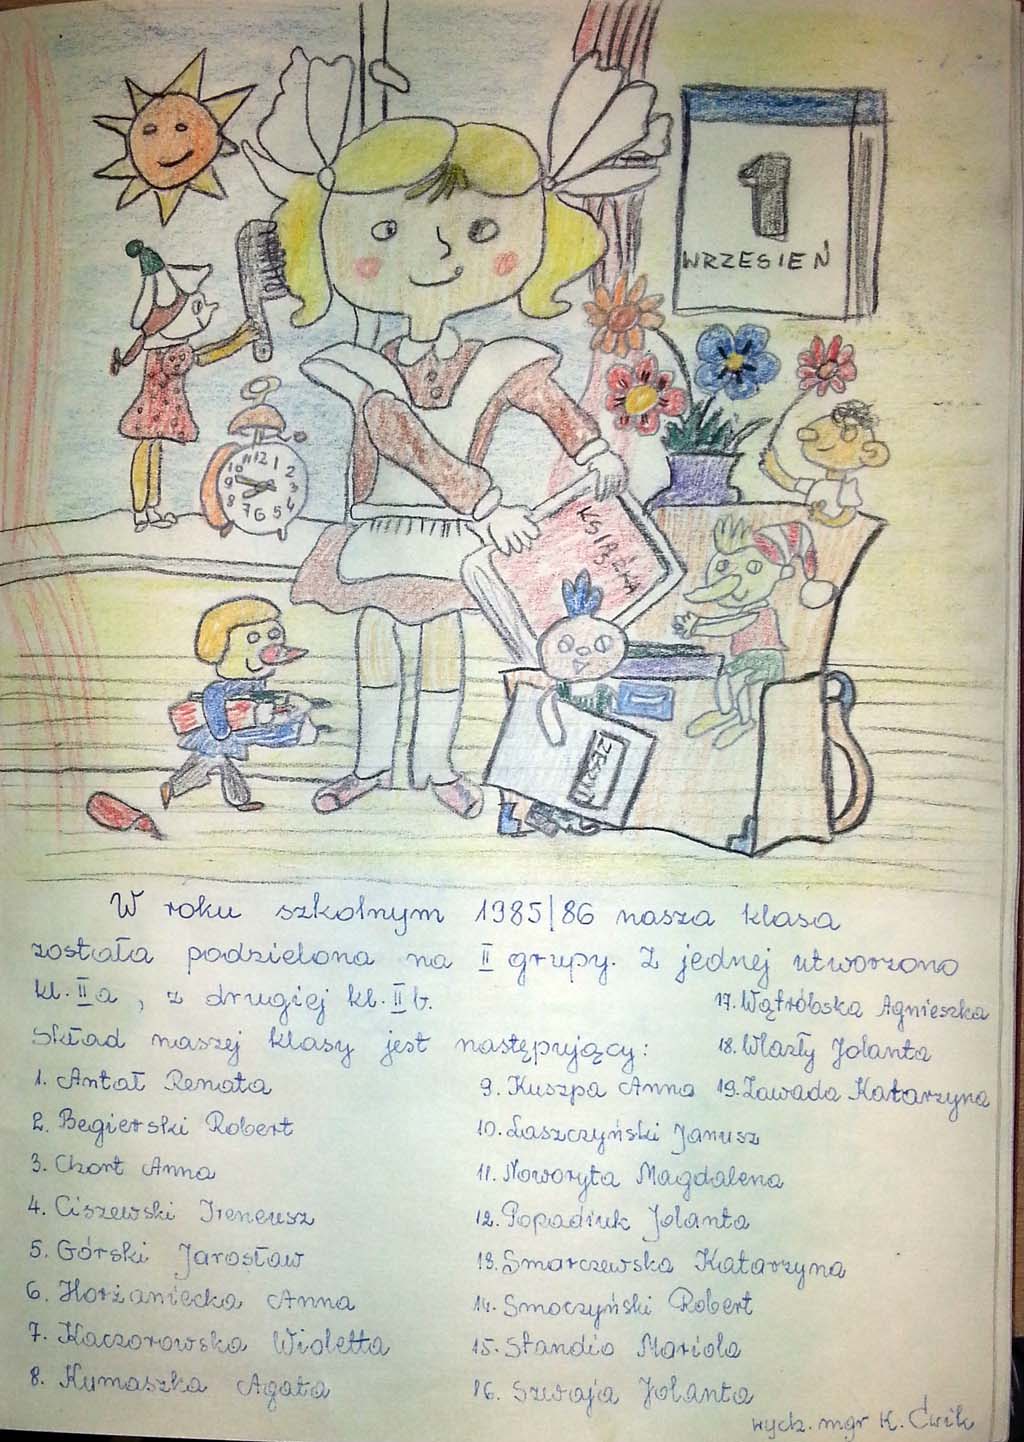 1
WRZESIEŃ
12 1 2 3 4 5 6 7 8 9 10 11
KSIĄŻKA
ZESZYT
W roku szkolnym 1985/86 nasza klasa
została podzielona na II grupy. Z jednej utworzono
kl. IIa, z drugiej kl. IIb.
Skład naszej klasy jest następujący:
1. Antał Renata
2. Begierski Robert
3. Chort Anna
4. Ciszewski Ireneusz
5. Górski Jarosław
6. Horżaniecka Anna
7. Kaczorowska Wioletta
8. Kumaszka Agata
9. Kuszpa Anna
10. Łaszczyński Janusz
11. Noworyta Magdalena
12. Popadiuk Jolanta
13. Smarczewska Katarzyna
14. Smoczyński Robert
15. Standio Mariola
16. Szwaja Jolanta
17. Wątróbska Agnieszka
18. Wlazły Jolanta
19. Zawada Katarzyna
wych. mgr K. Ćwik